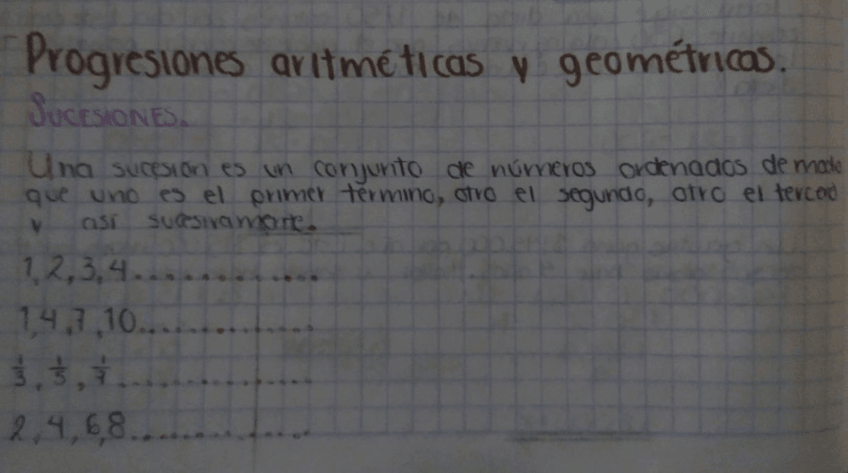 Progresiones aritméticas y geométricas.
SUCESIONES.
Una sucesión es un conjunto de números ordenados de modo
que uno es el primer término, otro el segundo, otro el tercero
y así sucesivamente.
1, 2, 3, 4.............
1, 4, 7, 10.............
1/3, 1/5, 1/7..............
2, 4, 6, 8.............